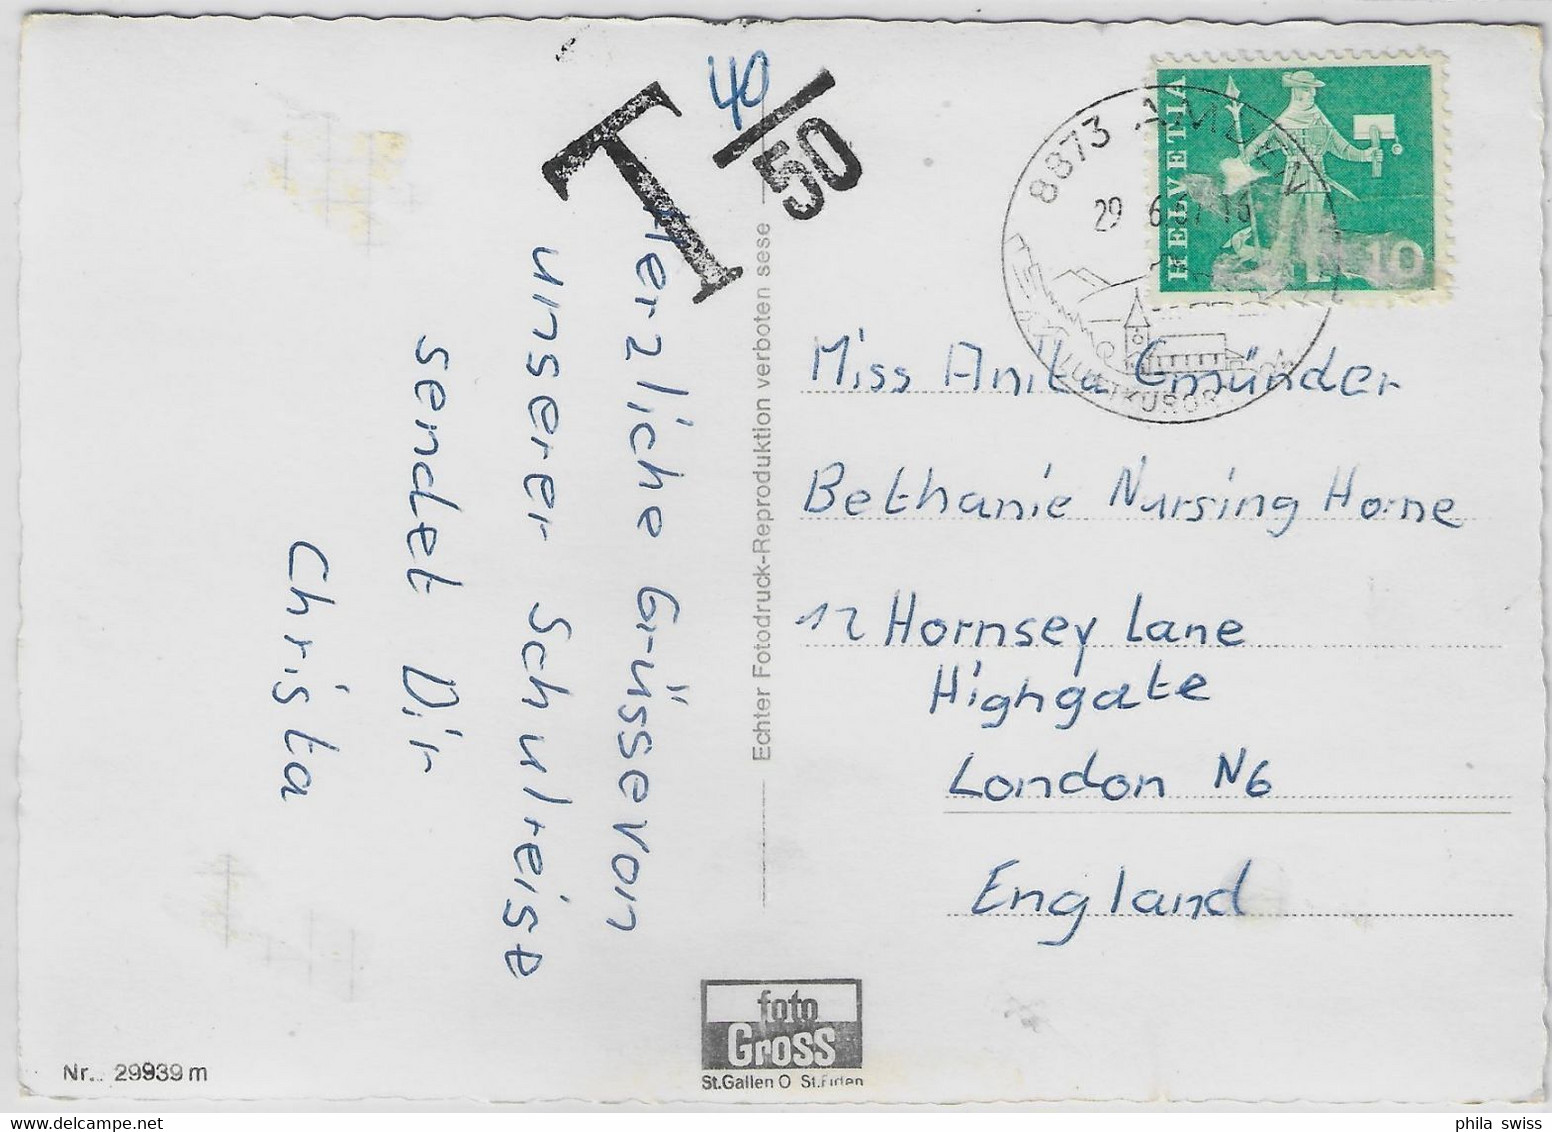 40
T/50
8873 AMDEN
29 6.67 - 16
LUFTKURORT
HELVETIA
10
Herzliche Grüsse von
unserer Schulreise
sendet Dir
Christa
Echter Fotodruck-Reproduktion verboten sese
Miss Anita Gmünder
Bethanie Nursing Home
12 Hornsey Lane
Highgate
London N6
England
foto
Gross
St.Gallen O St.Fiden
Nr. 29939 m
phila swiss